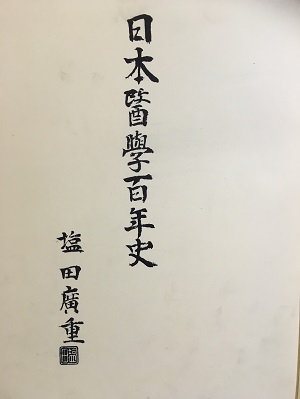 日本醫學百年史
塩田廣重